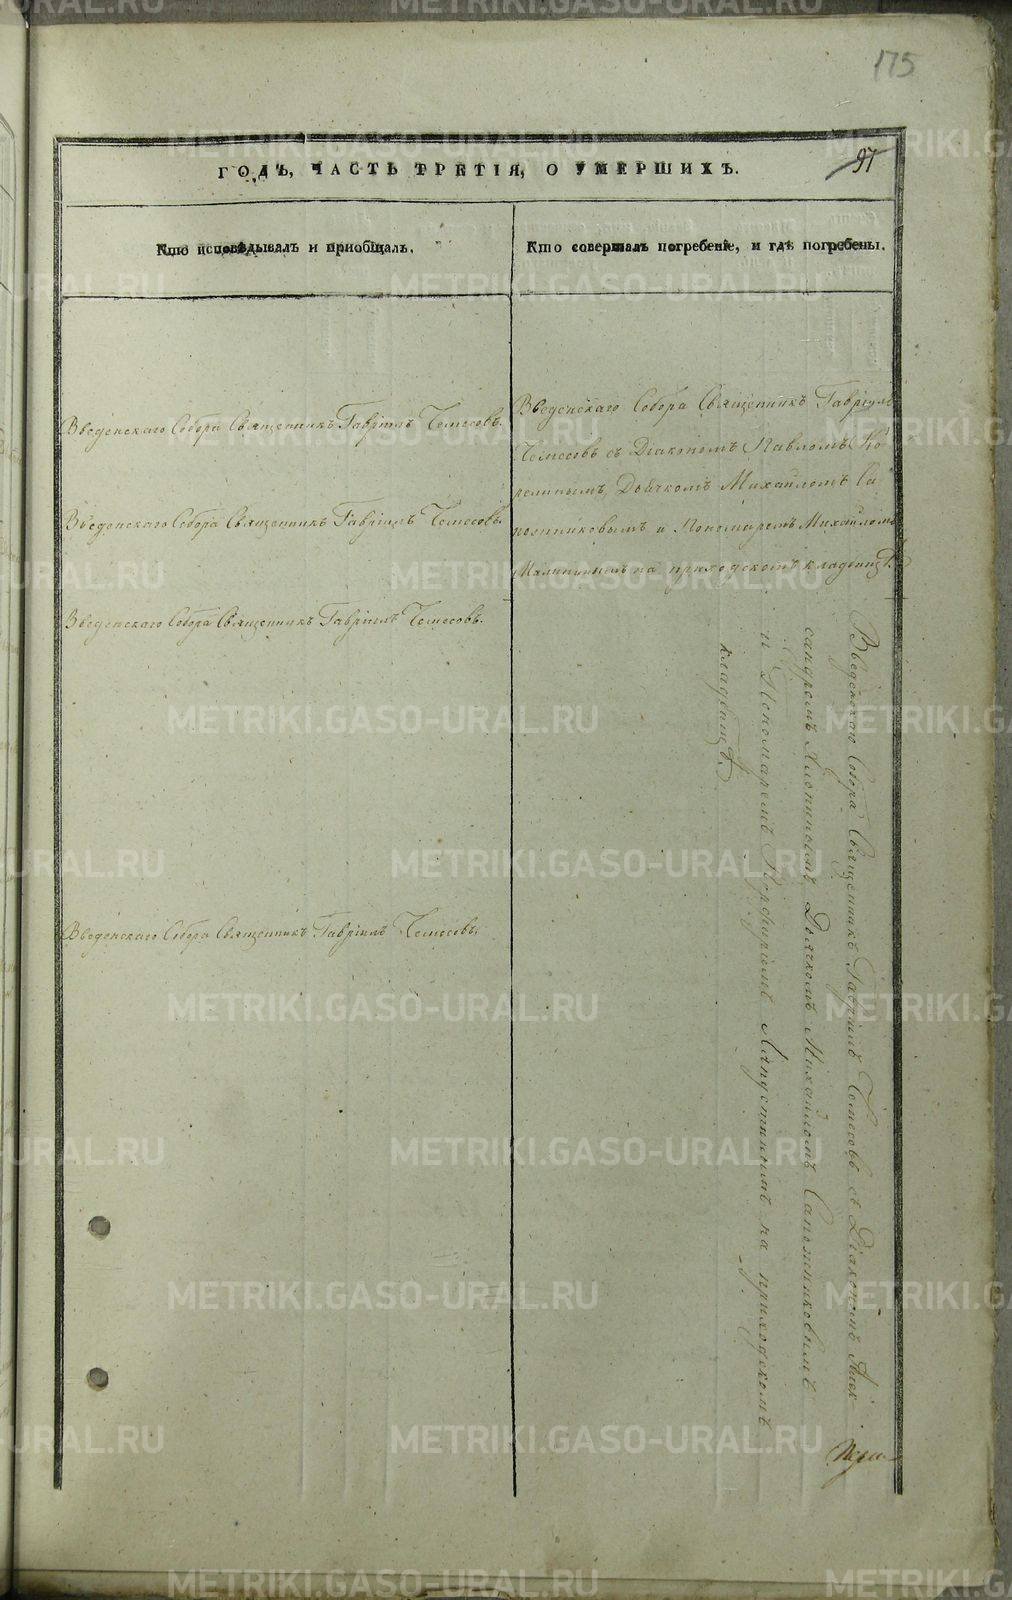 175
97
ГОДЪ, ЧАСТЬ ТРЕТІЯ, О УМЕРШИХЪ.
Кто исповѣдывалъ и приобщалъ.
Кто совершалъ погребеніе, и гдѣ погребены.
Введенскаго Собора Священникъ Гавріилъ Чемесовъ.
Введенскаго Собора Священникъ Гавріилъ Чемесовъ.
Введенскаго Собора Священникъ Гавріилъ Чемесовъ.
Введенскаго Собора Священникъ Гавріилъ Чемесовъ.
Введенскаго Собора Священникъ Гавріилъ
Чемесовъ съ Діакономъ Павломъ Ко-
релинымъ, Дьячкомъ Михайломъ Са
пожниковымъ и Пономаремъ Михайломъ
Малининымъ на приходскомъ кладбищѣ.
Введенскаго Собора Священникъ Гавріилъ Чемесовъ съ Діакономъ Алек-
сандромъ Хлопинымъ Дьячкомъ Михайломъ Сапожниковымъ
и Пономаремъ Порфиріемъ Ляпустинымъ на приходскомъ
кладбищѣ.
METRIKI.GASO-URAL.RU